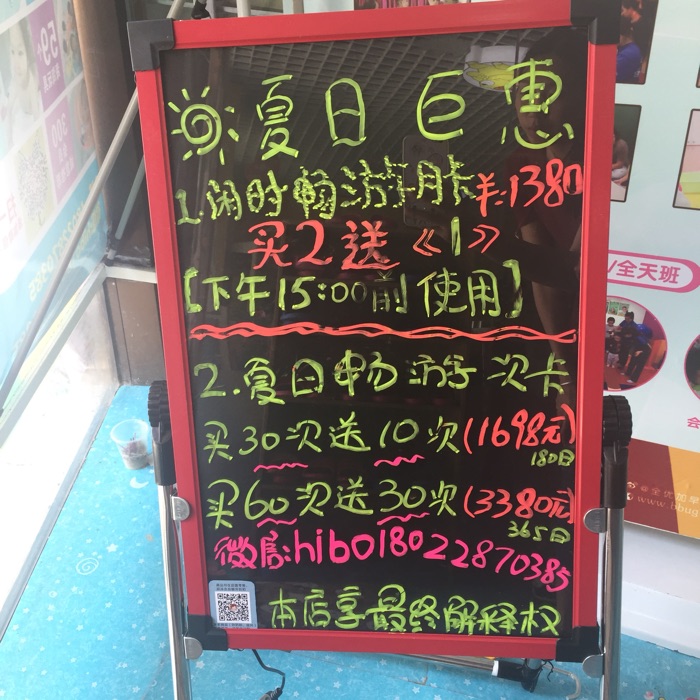 夏日巨惠
1.闲时畅游月卡¥:1380
买2送《1》
【下午15:00前使用】
2.夏日畅游次卡
买30次送10次(1698元)
180日
买60次送30次(3380元)
365日
微信:hibo18022870385
本店享最终解释权
/全天班
59
300